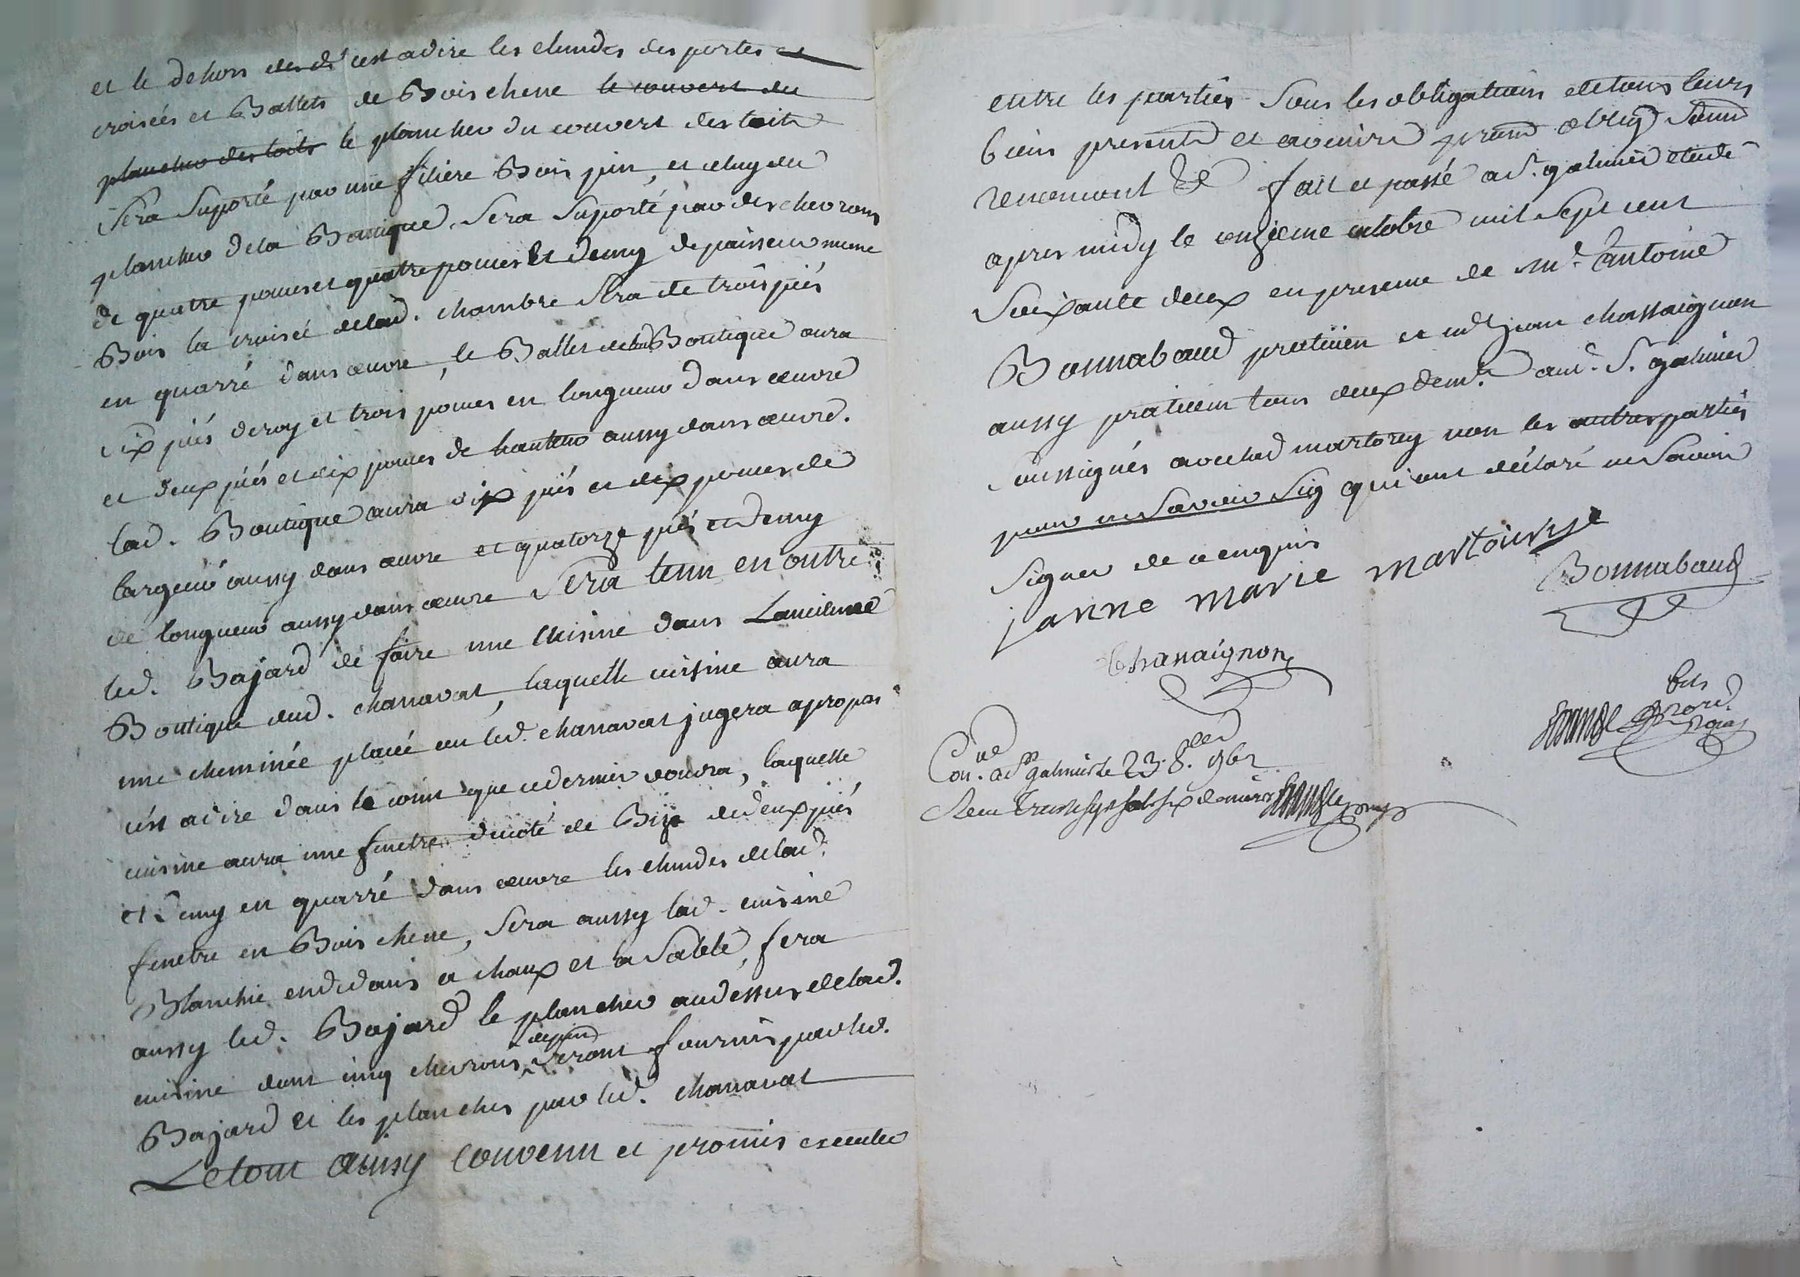 et le dehors des d c'est adire les chundes des portes et
croisées et Battets de Bois chene le couvert du
plancher des toits le plancher du couvert des toits
sera suporté par une filiere Bois pin, et celuy du
plancher dela Boutique sera suporté par des chevrons
de quatre pouces et quatre pouces et demy depaisseur meme
Bois la croisée delad. chambre sera de trois piés
en quarré dans œuvre, le Battet dela Boutique aura
six piés et trois pouces en longueur dans œuvre
et deux piés et dix pouces de hauteur aussy dans œuvre.
lad. Boutique aura dix piés et dix pouces de
largeur aussy dans œuvre et quatorze piés et demy
de longueur aussy dans œuvre sera tenu en outre
led. Bajard de faire une cuisine dans Lancienne
Boutique dud. chanavat, laquelle cuisine aura
une cheminée placée ou led. chanavat jugera apropos
c'est adire dans le coin que cedernier voudra, laquelle
cuisine aura une fenetre ducoté de Bize de deux piés
et demy en quarré dans œuvre les chundes delad.
fenetre en Bois chene, sera aussy lad. cuisine
Blanchie endedans a chaux et a sable, fera
aussy led. Bajard le plancher audessus delad.
cuisine dont cinq chevrons seront fournis par led.
Bajard et les planches par led. chanavat
Letout ainsy convenu et promis executer
entre les parties sous les obligations detous leurs
biens presents et avenirs
fait et passé a St. galmier etude
apres midy le onzieme octobre mil sept cent
soixante deux en presence de Me. antoine
Bonnabaud praticien et Me. jean chassaignon
aussy praticien tous deux dem.t aud. St. galmier
soussignés avec lad martorey non les autres parties
pour ne savoir sig qui ont déclaré ne savoir
signer de ce enquis
janne marie martoureye
Bonnabaud
Chassaignon
Con.lé a St galmier le 23 8.bre 1762